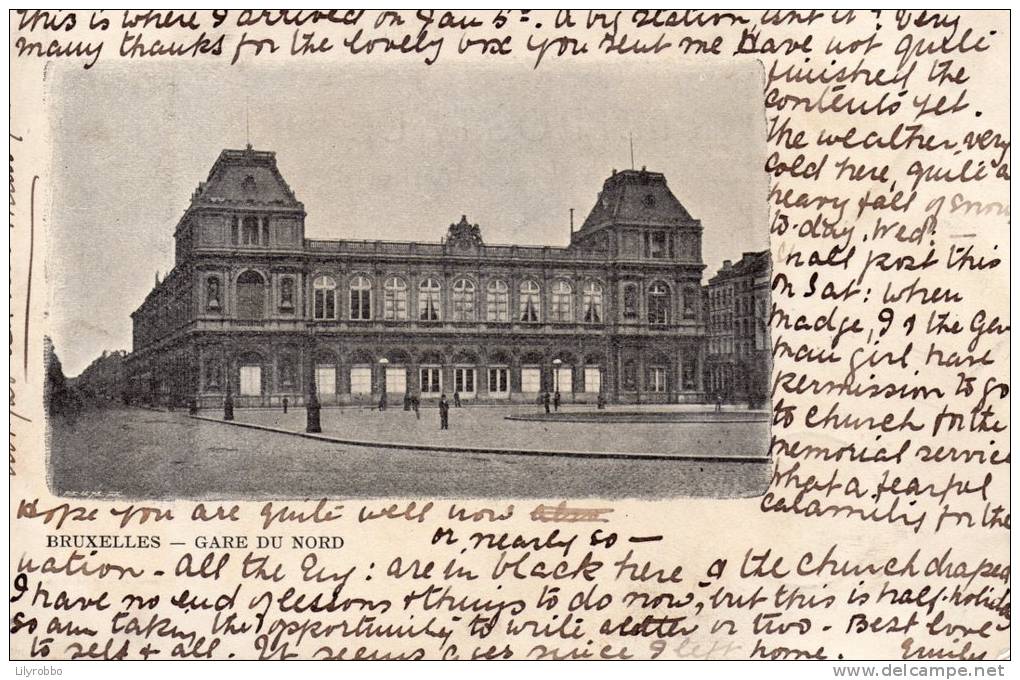 This is where I arrived on Jan 5th. A big station isn't it? Very
many thanks for the lovely box you sent me Have not quite
finished the
contents yet.
The weather, very
cold here, quite a
heavy fall of snow
to-day, Wed:
Shall post this
on Sat: when
Madge, I & the Ger
man girl have
permission to go
to church for the
memorial service
What a fearful
calamity for the
Hope you are quite well now
or nearly so —
BRUXELLES — GARE DU NORD
nation - All the Eng: are in black here & the church draped
I have no end of lessons & things to do now, but this is half-holiday
so am taking the opportunity to write a letter or two - Best love
to self & all. It seems ages since I left home. Emily
Lilyrobbo
delcampe.net